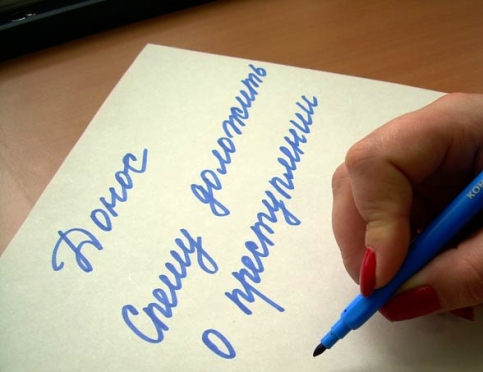 Донос
Спешу доложить
о преступлении
КОН